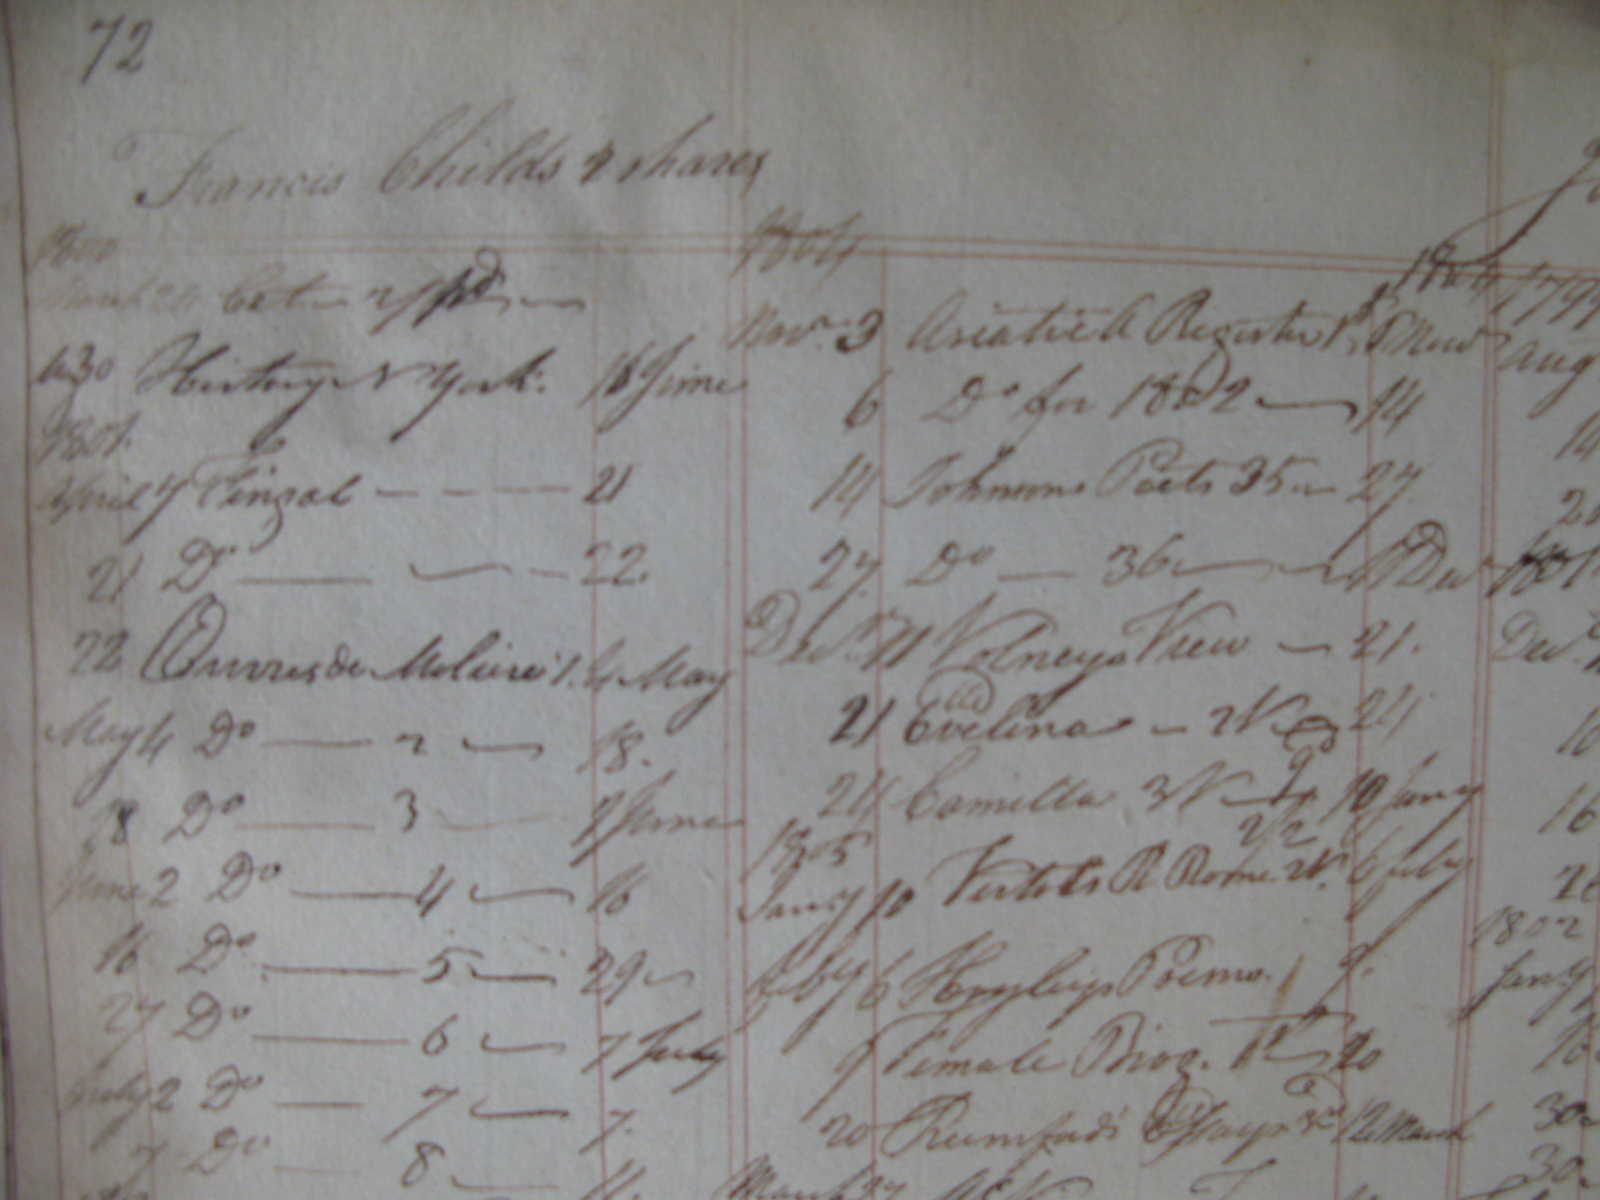 72
Francis Childs 4 shares
1800
March 24
630 History N York. 16 June
1801.
April 7 Fingal 21
21 Do 22.
22 Ouvres de Moliere 1. 4 May
May 4 Do 2 18.
18 Do 3 2 June
June 2 Do 4 16
16 Do 5 29
27 Do 6 7 July
July 2 Do 7 7.
7 Do 8 11
1804
Novr. 3 Asiatick Register 1st 6 Nov
6 Do for 1802 14
14 Johnsons Poets 35 27
27. Do 36 11 Dec
Decr. 11 Volneys View 21.
21 Evelina 2V 24
24 Camilla 3V 10 Jany
1805
Jany 10 Vertots R Rome 2V. 6 feby
feby 6 Hayleys Poems. 1 9.
9 Female Biog. 1st 20
20 Rumfords Essays 12 March
March
1804
1799
Aug
14
Dec.
16
1802
Jany
16
30
30